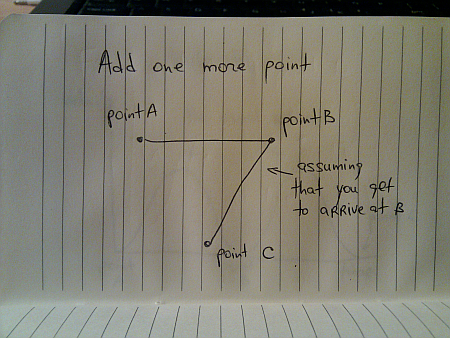 Add one more point
point A
point B
assuming
that you get
to ARRIVE at B
point C